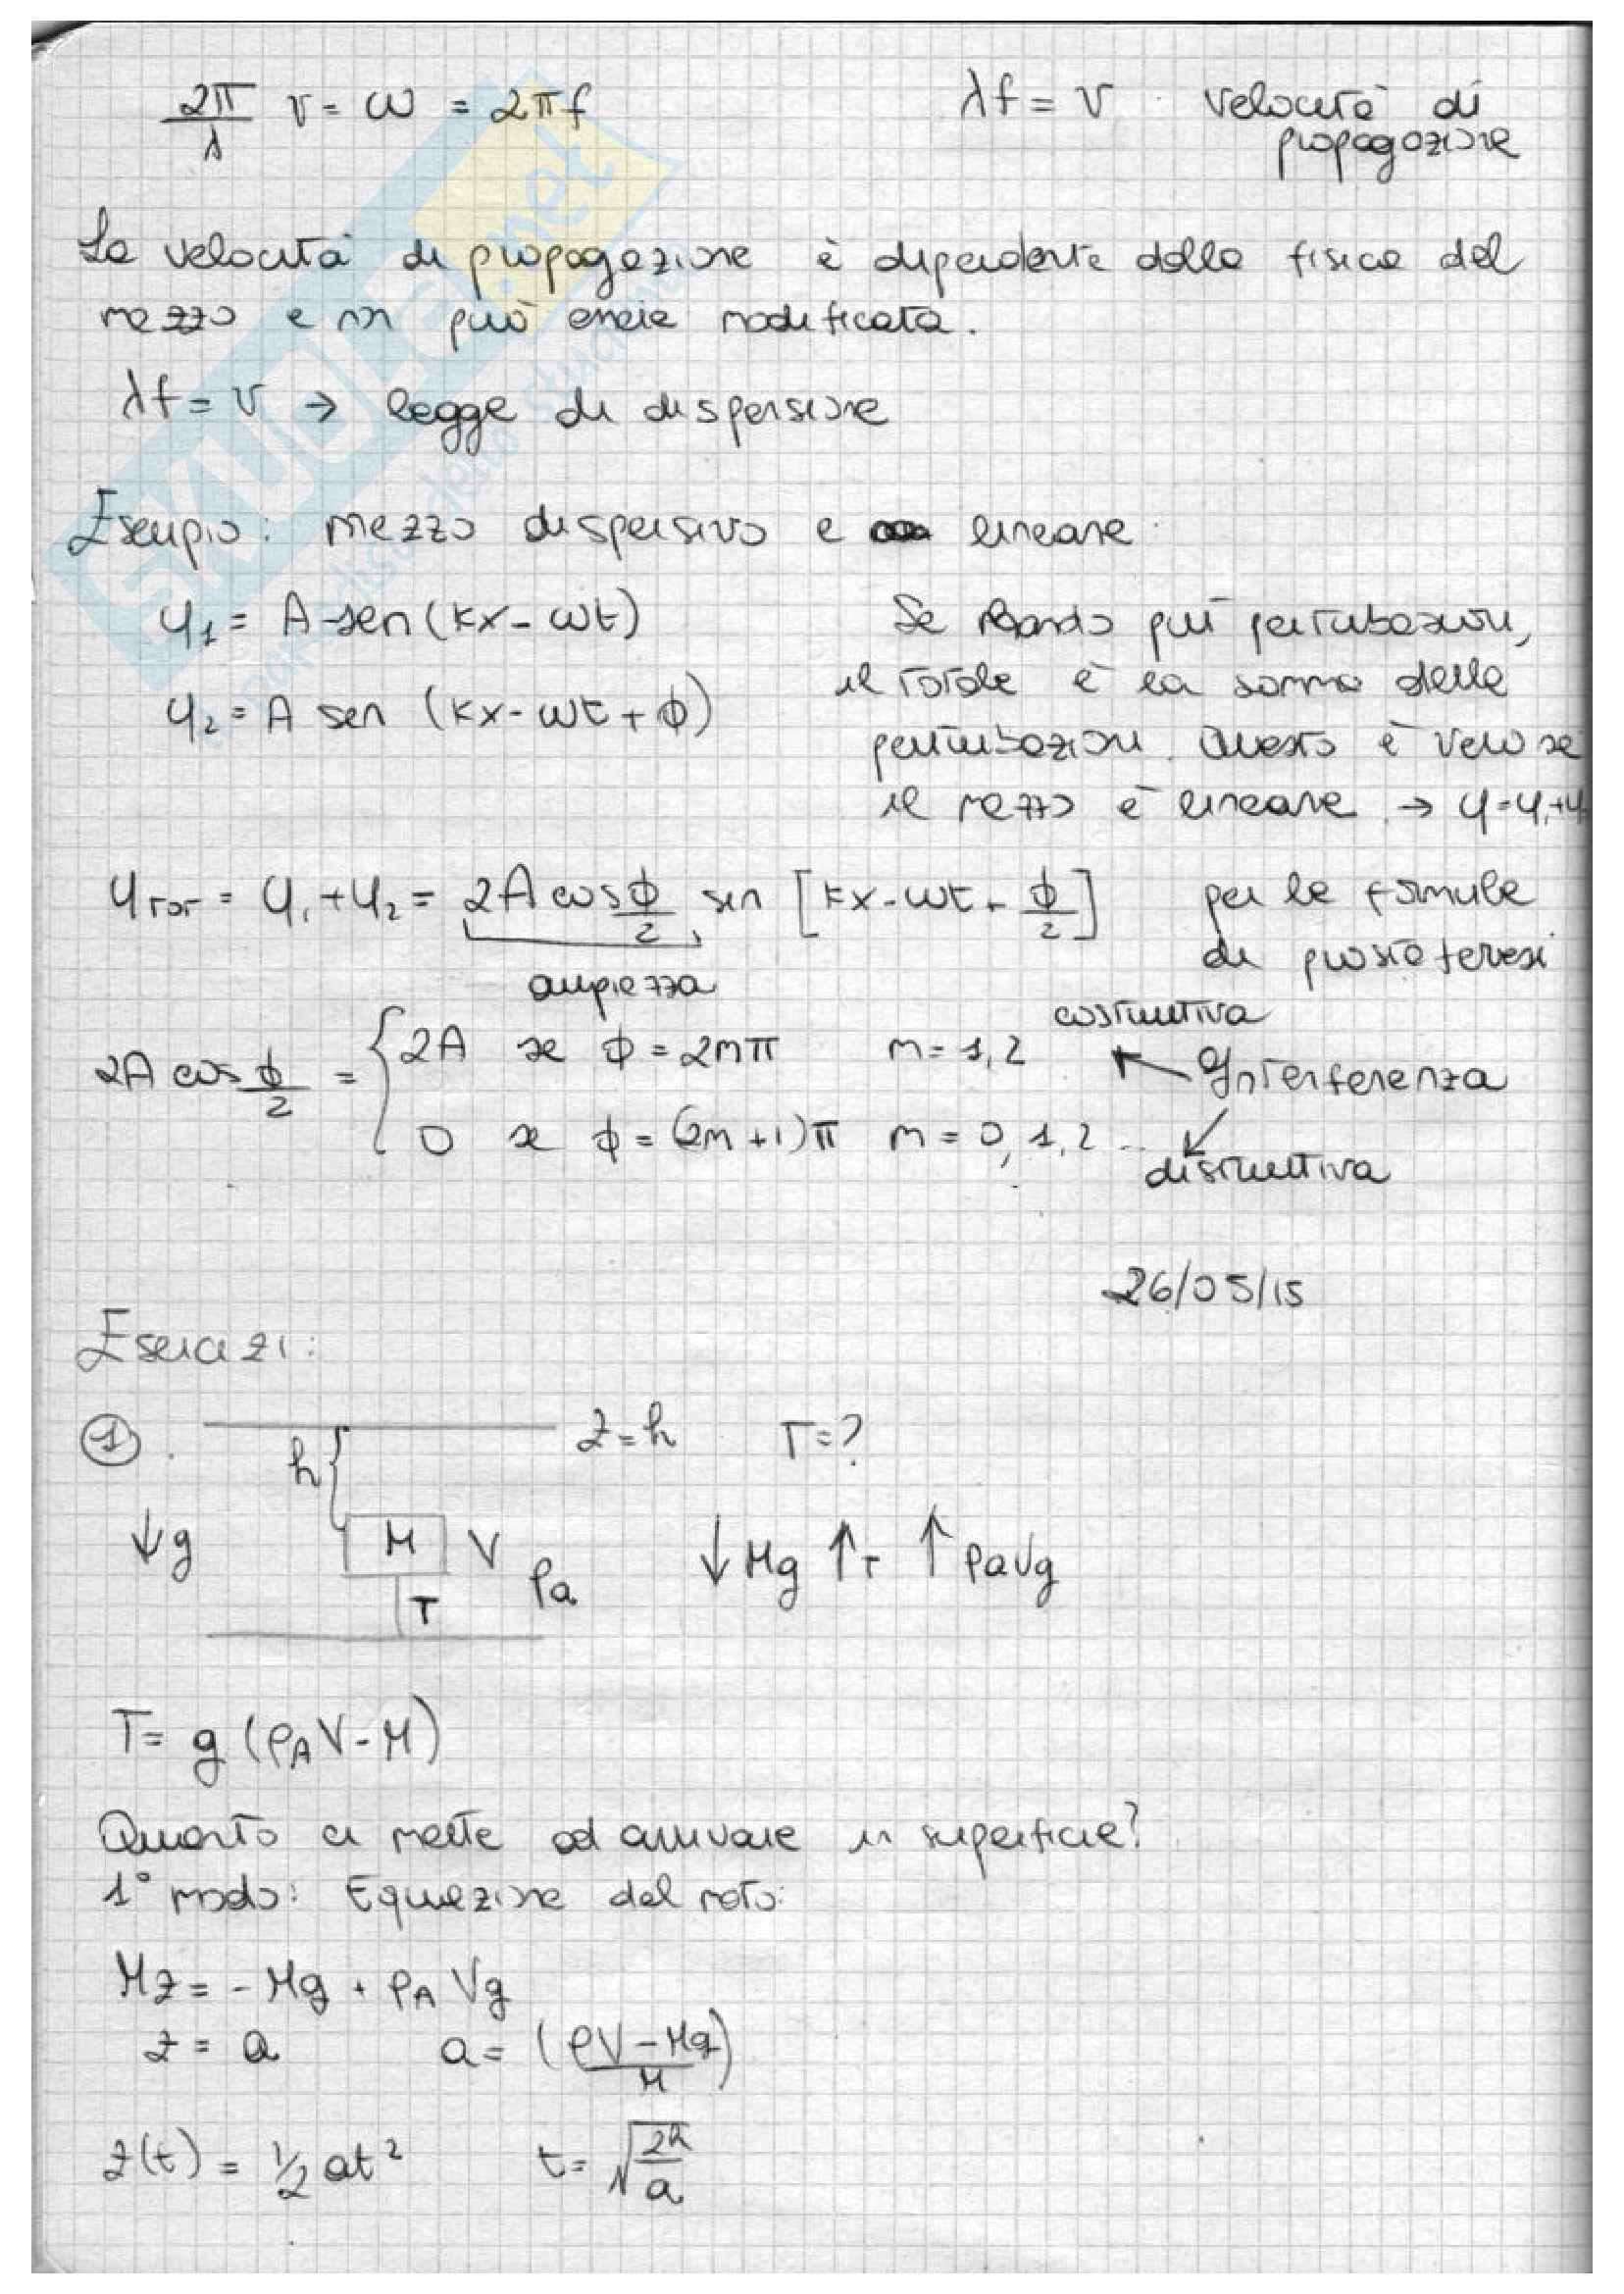 2π/λ v = ω = 2πf    λf = v . velocità di
propagazione
La velocità di propagazione è dipendente dalla fisica del
mezzo e nn può essere modificata.
λf = v → legge di dispersione
Esempio: mezzo dispersivo e lineare.
y1 = A sen(kx - ωt)
y2 = A sen (kx - ωt + φ)
Se mando più perturbazioni,
il totale è la somma delle
perturbazioni. Questo è vero se
il mezzo è lineare → y = y1+y
yTOT = y1 + y2 = 2A cos φ/2 sen [kx - ωt + φ/2]    per le formule
di prostaferesi
ampiezza
2A cos φ/2 = { 2A se φ = 2mπ    m = 1,2
0 se φ = (2m+1)π    m = 0,1,2 ...
costruttiva
Interferenza
distruttiva
26/05/15
Esercizi:
① .    z = h    T = ?
h
↓g    M    V    ρa    ↓Mg ↑T ↑ρaVg
T
T = g (ρA V - M)
Quanto ci mette ad arrivare in superficie?
1° modo: Equazione del moto:
Mz = - Mg + ρA Vg
z = a    a = (ρV - Mg/M)
z(t) = 1/2 at²    t = √2h/a
SKUOLA.net